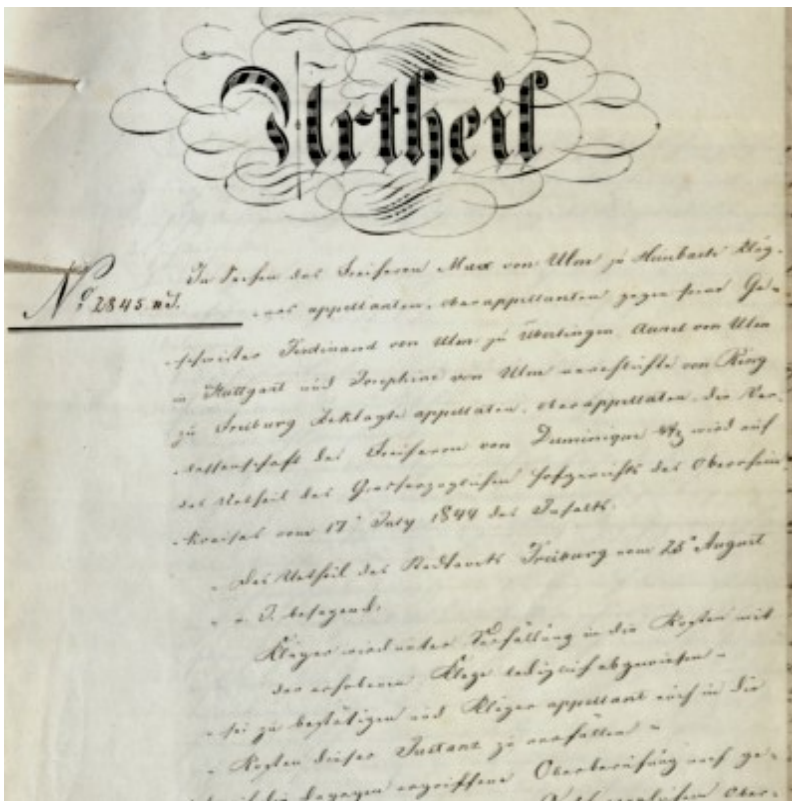 Urtheil
No 2845. II. S.
In Sachen des Freiherrn Max von Ulm zu Heimbach Kläg-
ers appellanten, oberappellanten gegen seine Ge-
schwister Ferdinand von Ulm zu Überlingen, Aurel von Ulm
in Stuttgart und Josephine von Ulm verehelichte von Ring
zu Freiburg Beklagte appellaten, oberappellaten, die Ver-
lassenschaft des Freiherrn von Duminique wird auf
das Urtheil des Grossherzoglichen Hofgerichts des Oberrhein-
Kreises vom 17. July 1844 des Inhalts:
„ Das Urtheil des Stadtamts Freiburg vom 25. August
„ v. J. besagend:
Kläger wird unter Verfällung in die Kosten mit
der erhobenen Klage lediglich abgewiesen –
„ sei zu bestätigen und Kläger appellant auch in die
„ Kosten dieser Instanz zu verfällen –
die dagegen ergriffene Oberberufung nach ge-
Ober-